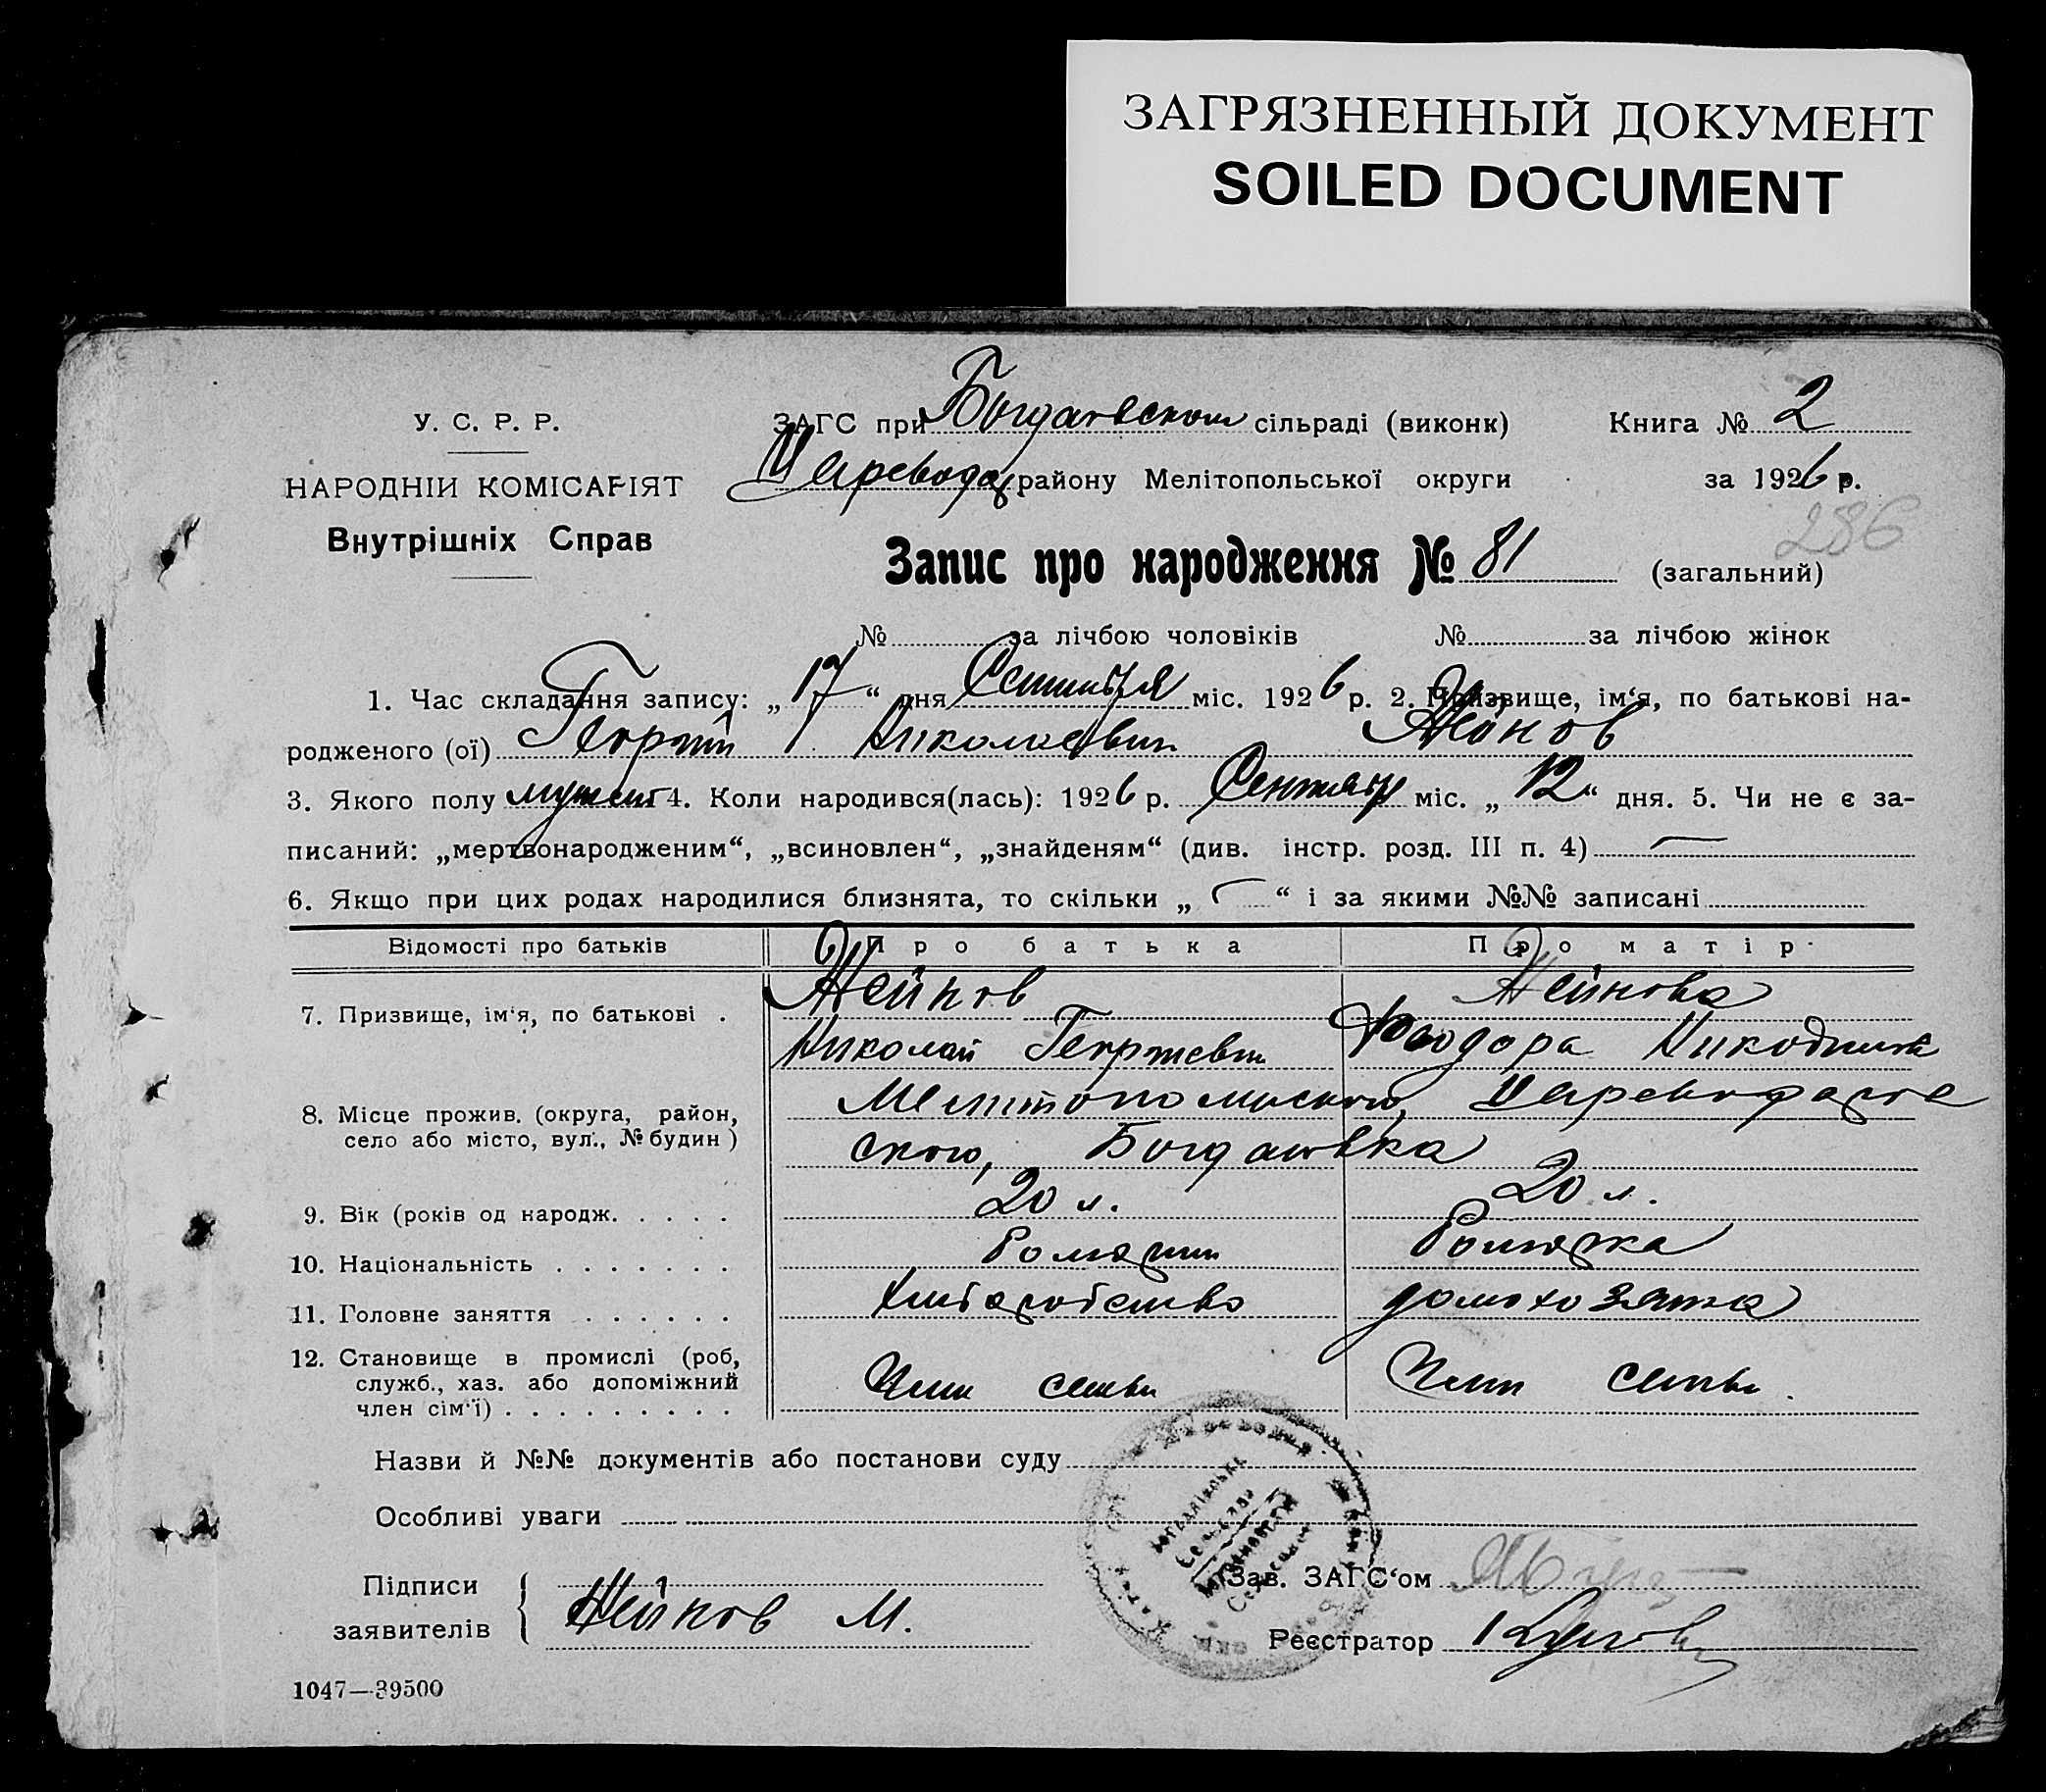 ЗАГРЯЗНЕННЫЙ ДОКУМЕНТ
SOILED DOCUMENT
У. С. Р. Р.
НАРОДНІЙ КОМІСАРІЯТ
Внутрішніх Справ
ЗАГС при Богдановском сільраді (виконк) Книга № 2
району Мелітопольської округи за 1926 р.
286
Запис про народження № 81 (загальний)
№ за лічбою чоловіків № за лічбою жінок
1. Час складання запису: „17“ дня Сентября міс. 1926 р. 2. Призвище, ім‘я, по батькові на-
родженого (ої) Георгий Николаевич
3. Якого полу 4. Коли народився(лась): 1926 р. Сентябр міс. „12“ дня. 5. Чи не є за-
писаний: „мертвонародженим“, „всиновлен“, „знайденям“ (див. інстр. розд. III п. 4) —
6. Якщо при цих родах народилися близнята, то скільки „ — “ і за якими №№ записані
Відомості про батьків Про батька Про матір
7. Призвище, ім‘я, по батькові . Жейнов Жейнова
Николай Георгиевич Феодора
8. Місце прожив. (округа, район,
село або місто, вул., № будин) Богдановка
9. Вік (років од народж. . . . . 20 л. 20 л.
10. Національність . . . . . . .
11. Головне заняття . . . . . . Хлеборобство домохозяйка
12. Становище в промислі (роб,
служб., хаз. або допоміжний
член сім‘ї) . . . . . . . . . Член семьи Член семьи.
Назви й №№ документів або постанови суду
Особливі уваги
Підписи
заявителів { Жейнов М.
Зав. ЗАГС‘ом
Реєстратор
1047—39500